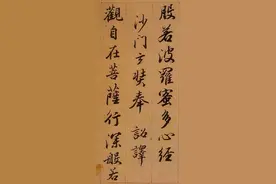 般若波羅蜜多心经
沙门玄奘奉 詔譯
觀自在菩薩行深般若